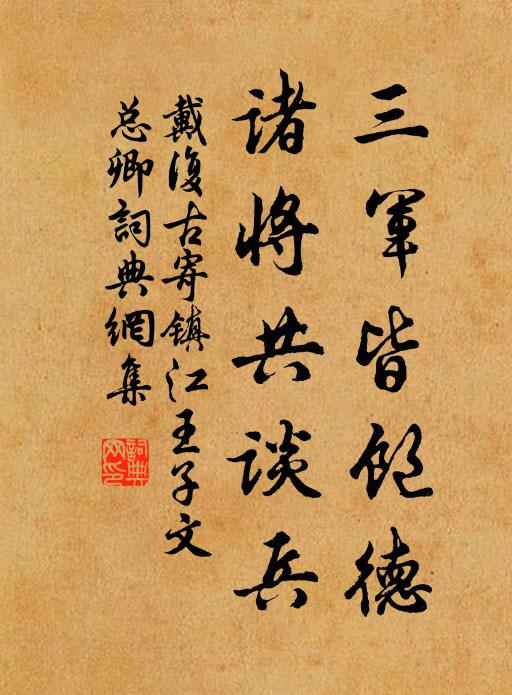 三軍皆飽德
諸將共談兵
戴復古寄鎮江王子文
总卿詞典網集
詞典
网印